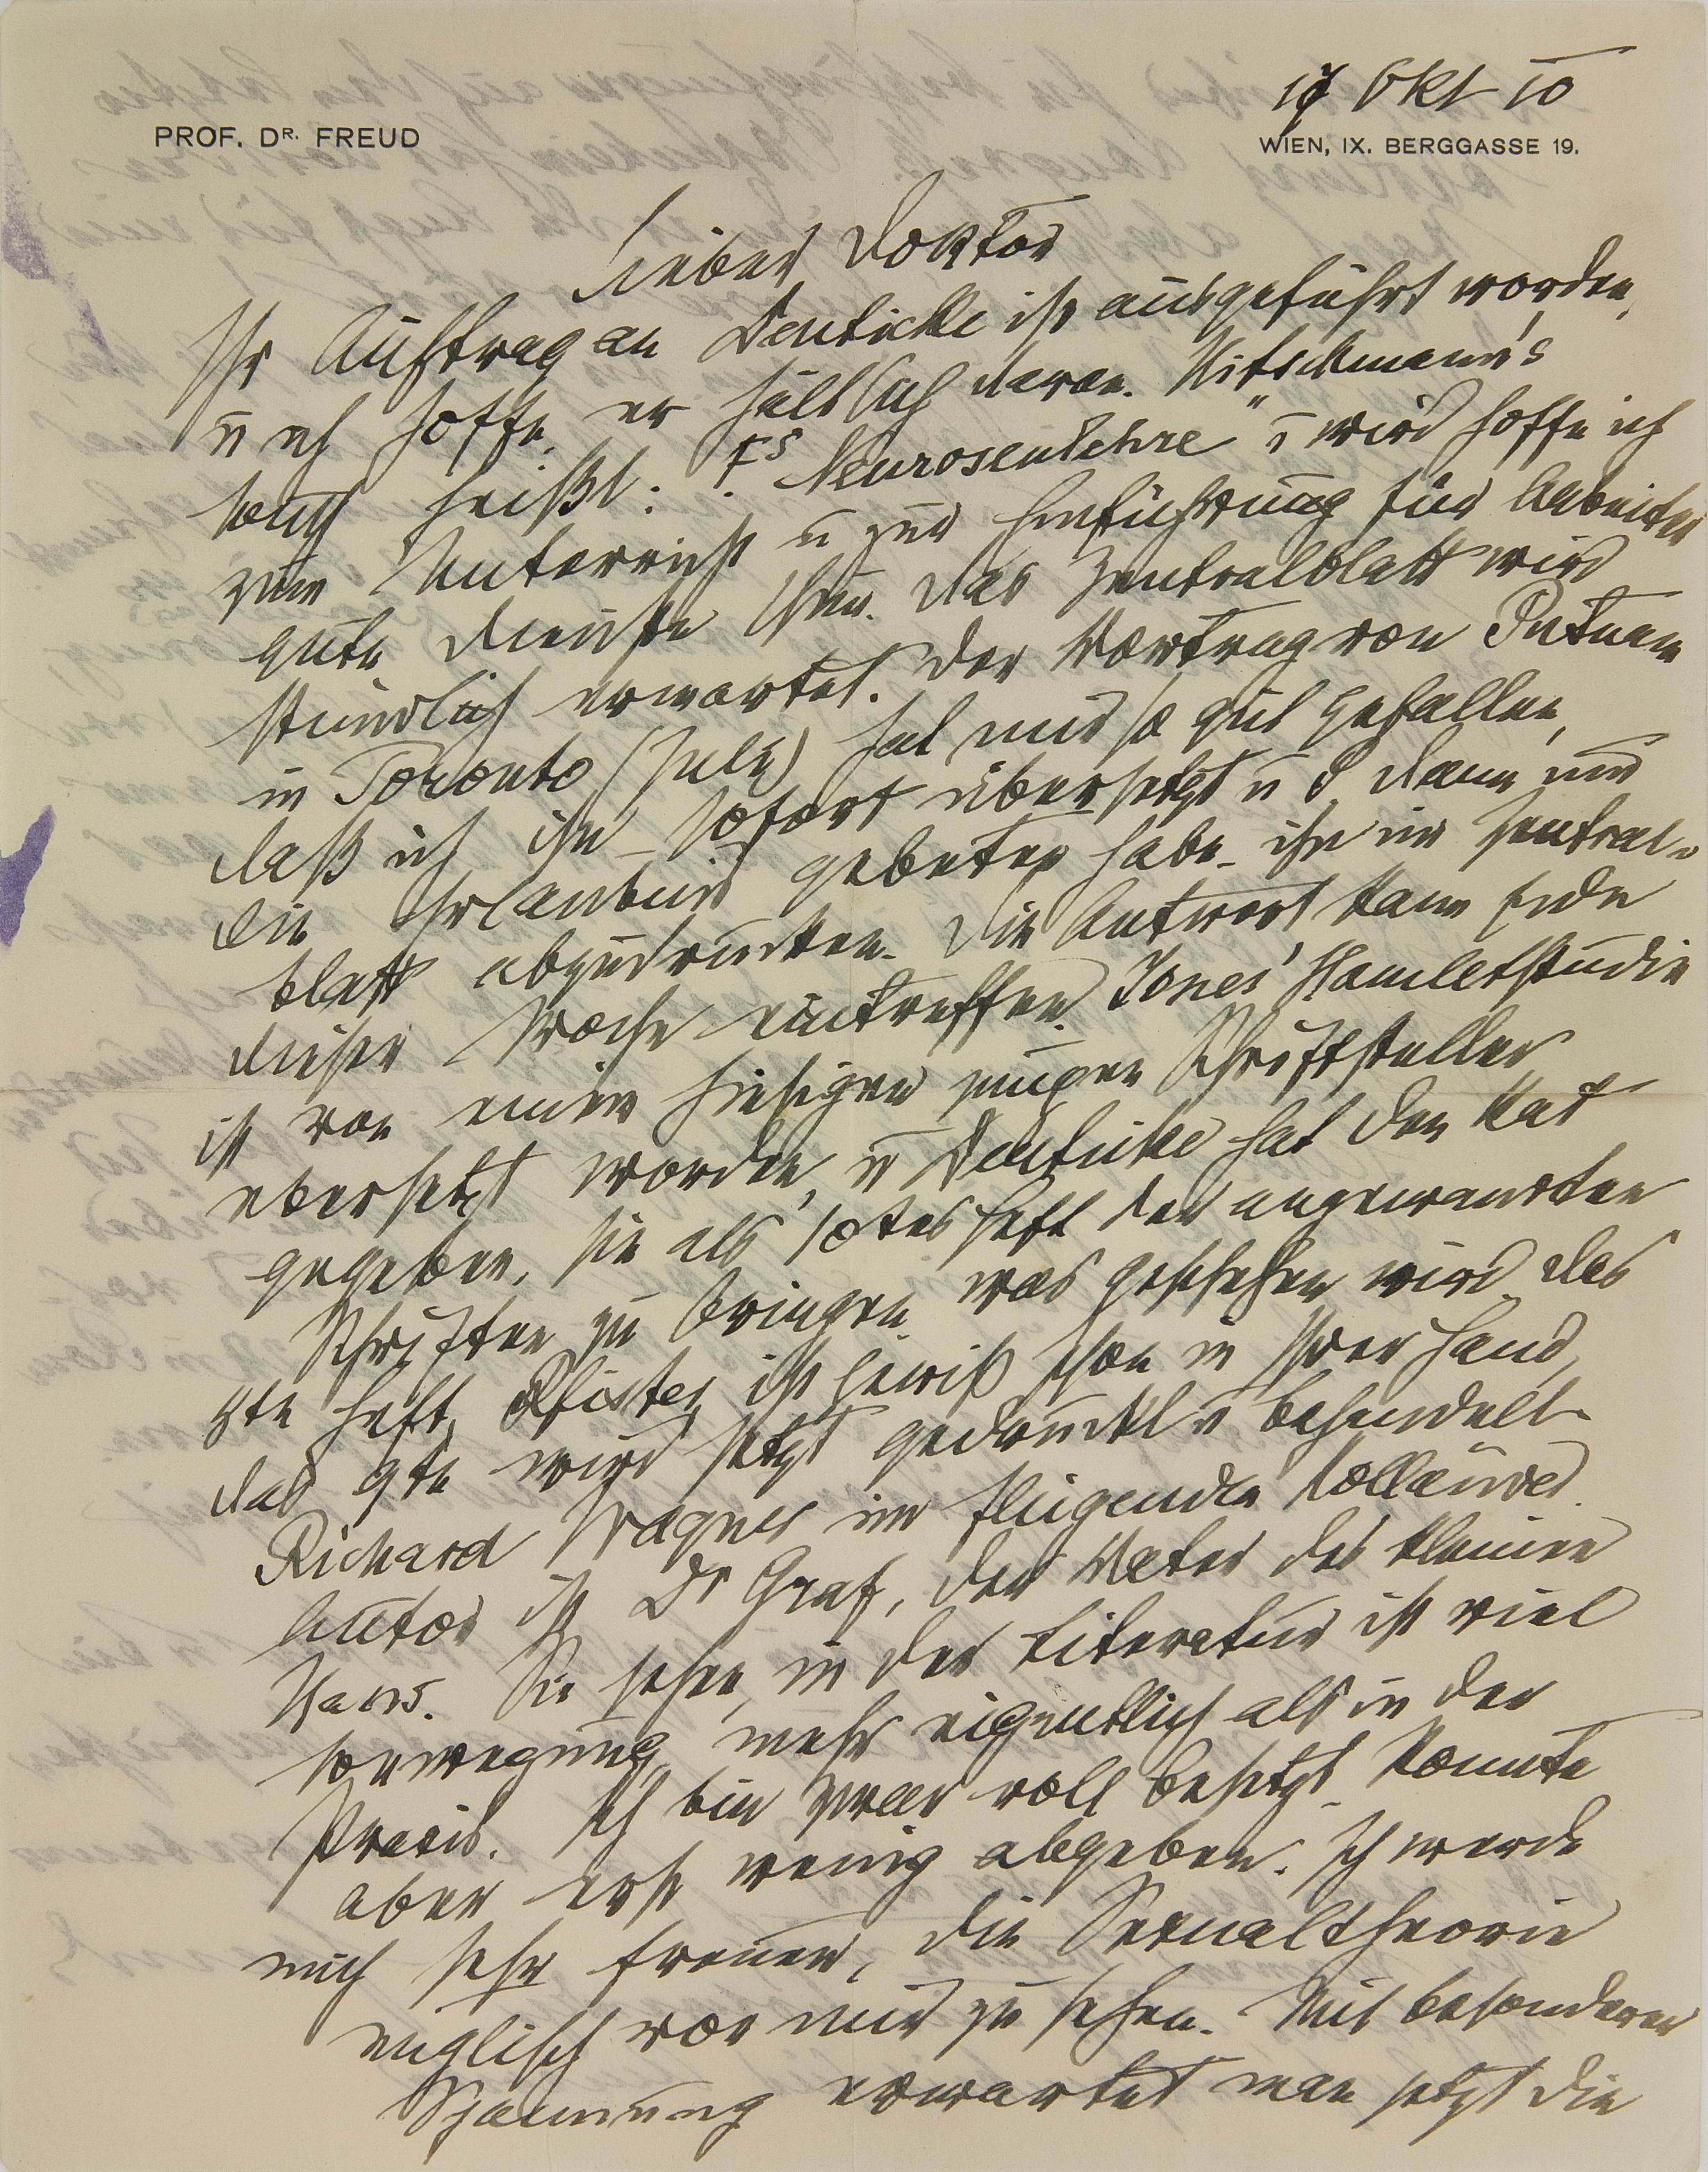 17 Okt 10
PROF. DR. FREUD
WIEN, IX. BERGGASSE 19.
Lieber Doktor
Ihr Auftrag an Deuticke ist ausgeführt worden,
u ich hoffe, er hält sich daran. Hitschmann's
Buch heißt: F's Neurosenlehre" u wird hoffe ich
zum Unterricht u zur Einführung für Arbeiter
gute Dienste thun. Das Zentralblatt wird
stündlich erwartet. Der Vortrag von Putnam
in Toronto (July) hat mir so gut gefallen,
daß ich ihn sofort übersetzt u P dann um
die Erlaubnis gebeten habe ihn im Zentral-
blatt abzudrucken. Die Antwort kann Ende
dieser Woche eintreffen. Jones' Hamletstudie
ist von einem hiesigen jungen Schriftsteller
übersetzt worden, u Deuticke hat den Rat
gegeben, sie als 10tes Heft der angewandten
Schriften zu bringen was geschehen wird. Das
8te Heft, Pfister ist gewiß schon in Ihrer Hand,
das 9te wird jetzt gedruckt u behandelt
Richard Wagner im fliegenden Holländer.
Autor ist Dr Graf, der Vater des kleinen
Hans. Sie sehen, in der Literatur ist viel
Bewegung, mehr eigentlich als in der
Praxis. Ich bin zwar voll besetzt, konnte
aber erst wenig abgeben. Ich werde
mich sehr freuen, die Sexualtheorie
englisch vor mir zu sehen. Mit besonderer
Spannung erwartet man jetzt die